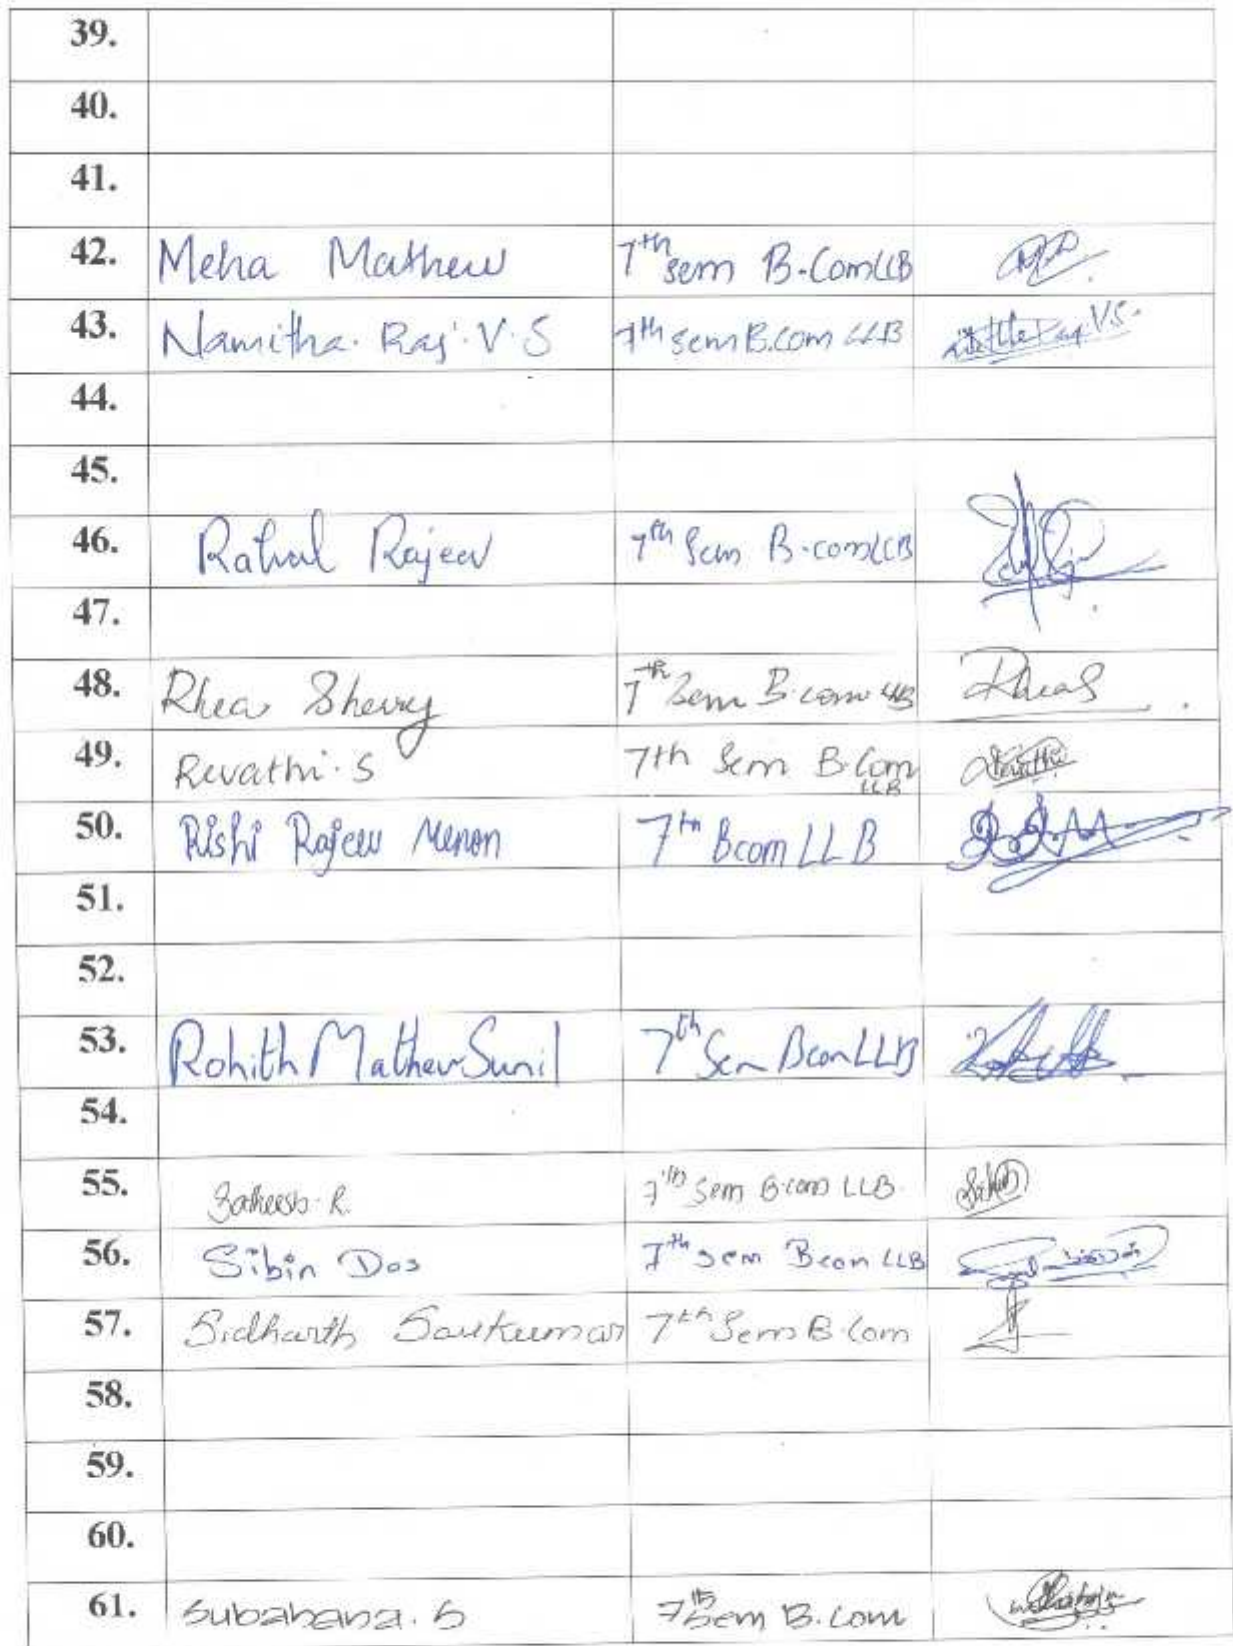 39.
40.
41.
42. Meha Mathew 7th sem B.Com LLB
43. Namitha. Raj. V. S 7th sem B.com LLB V.S.
44.
45.
46. Rahul Rajeev 7th Sem B.com LLB
47.
48. Rhea Sherry 7th Sem B.com LLB RheaS
49. Revathi. S 7th Sem B.Com LLB Revathi
50. Rishi Rajeev Menon 7th Bcom LLB
51.
52.
53. Rohith Mathew Sunil 7th Sem Bcom LLB
54.
55. R. 7th Sem B.com LLB
56. Sibin Das 7th sem Bcom LLB
57. Sidharth Sasikumar 7th Sem B.Com
58.
59.
60.
61. Subahana. S 7th Sem B.Com